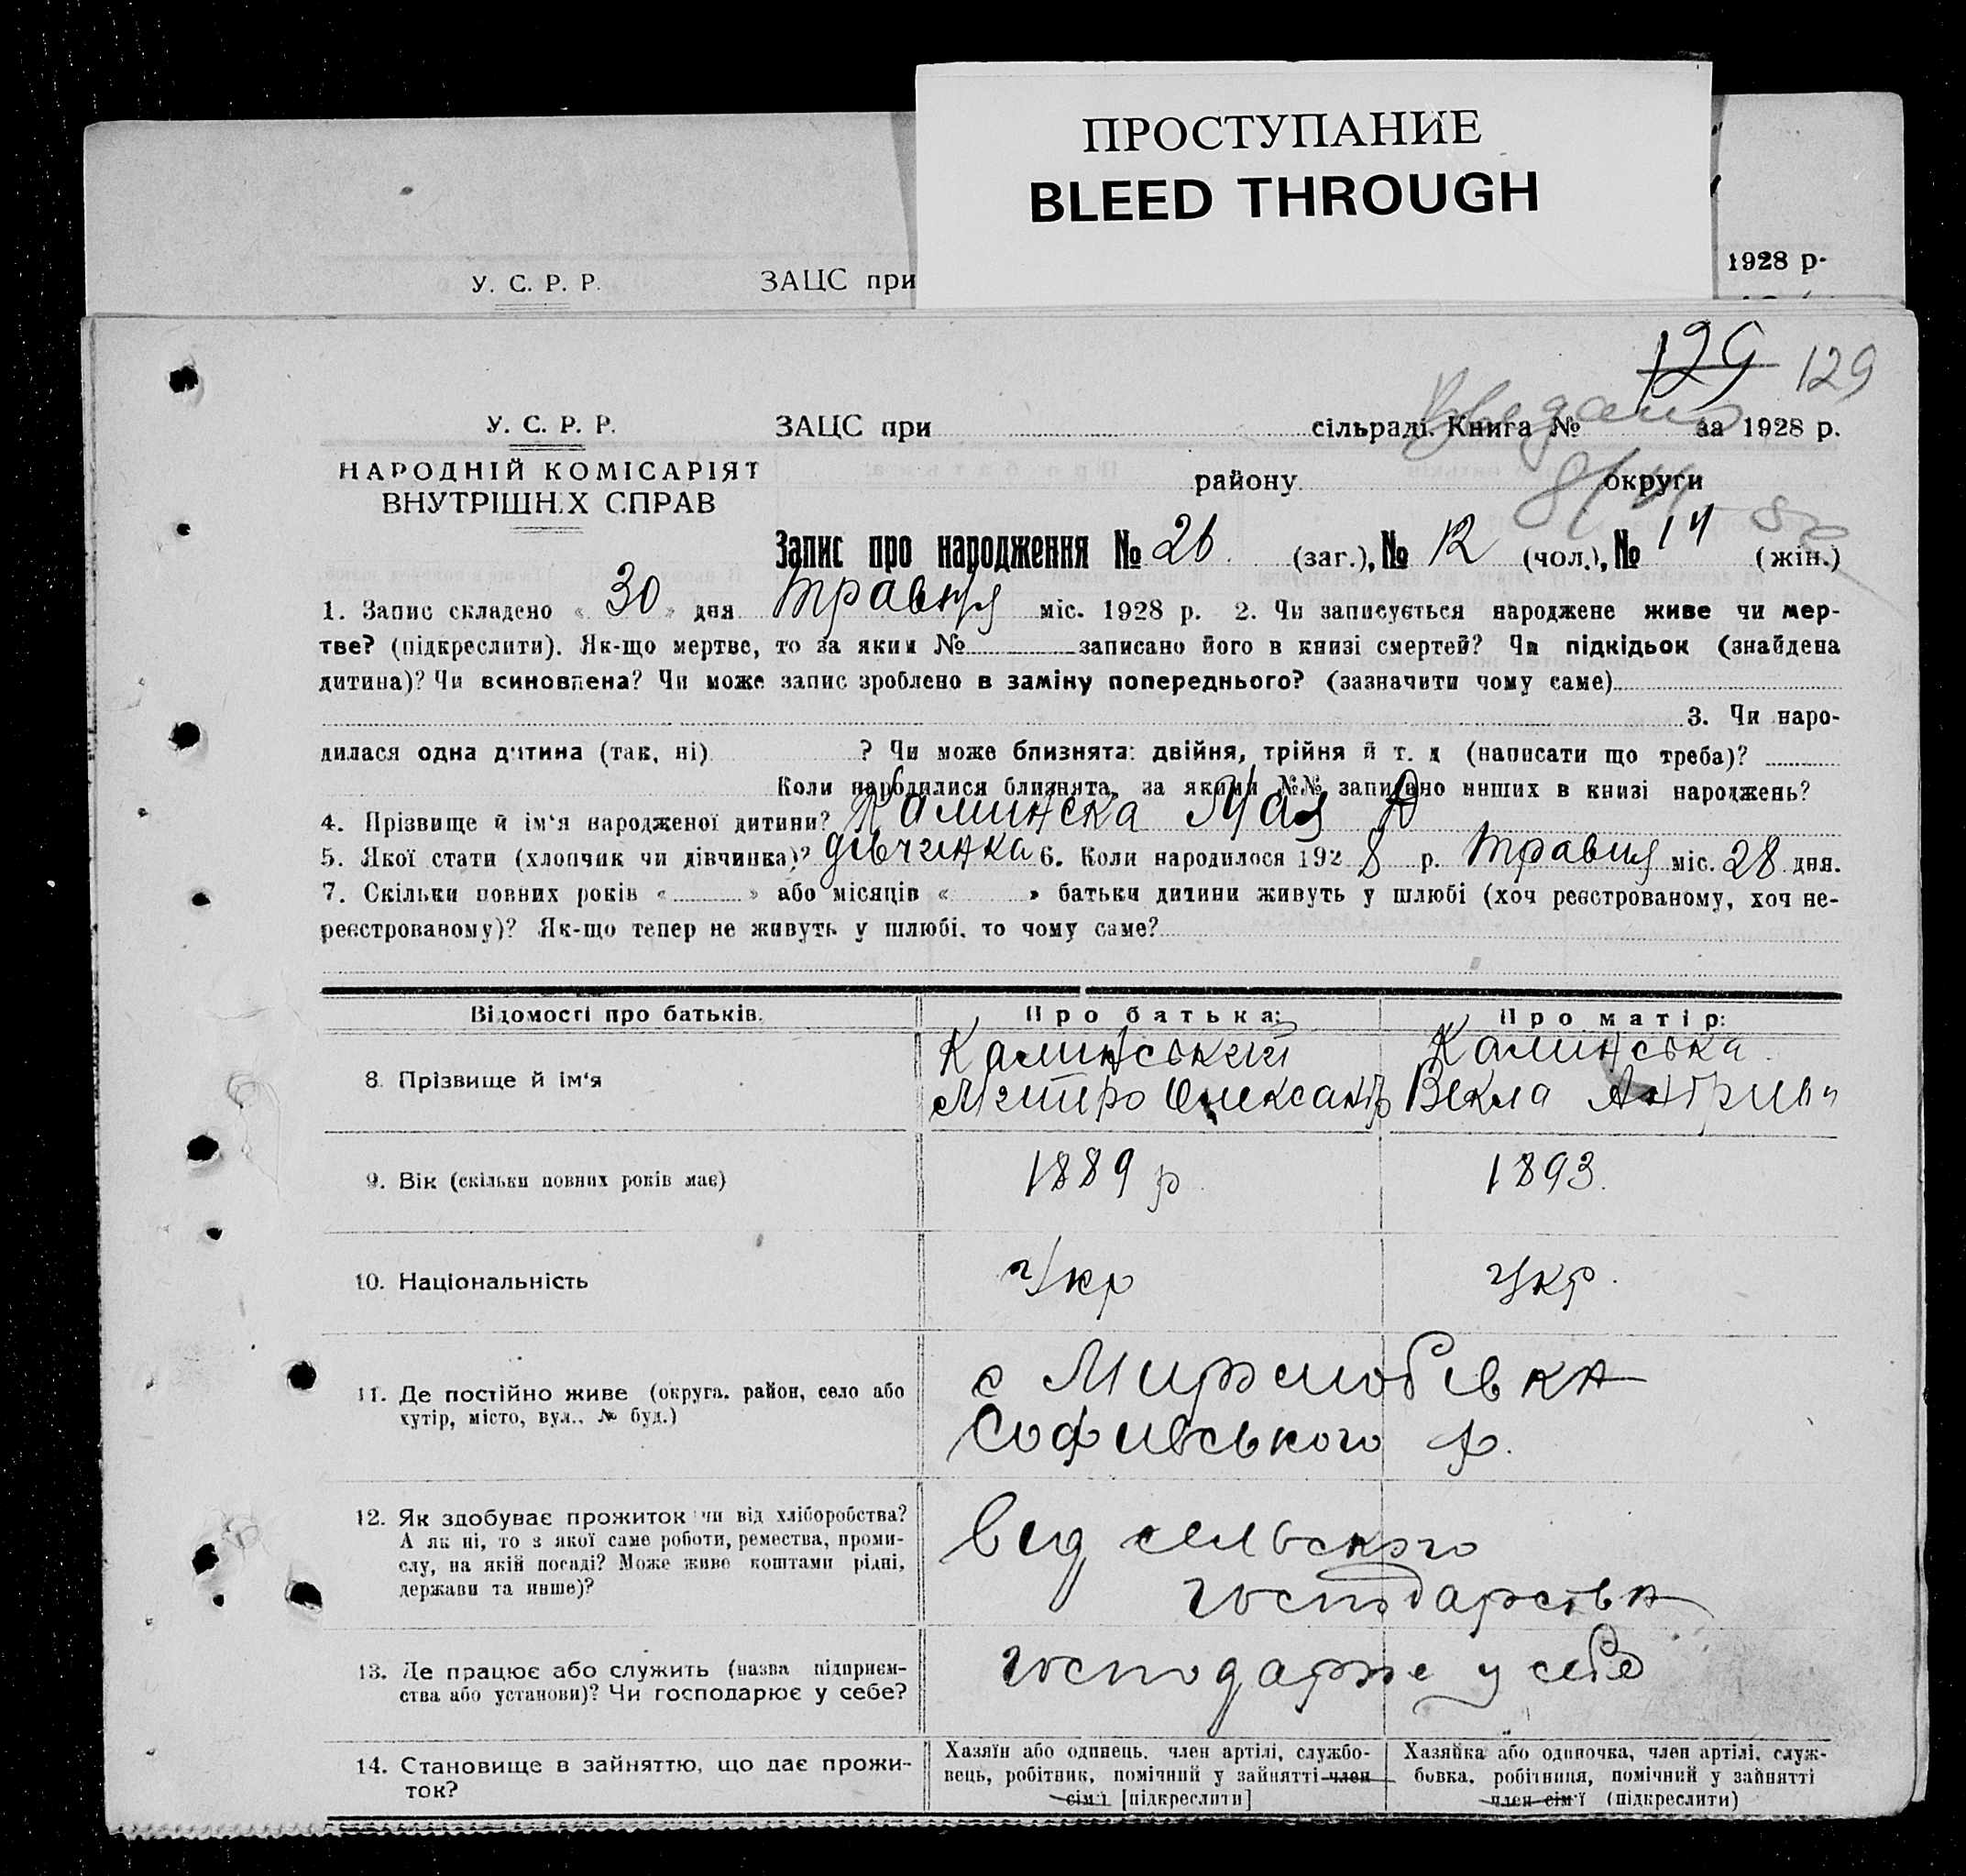 ПРОСТУПАНИЕ
BLEED THROUGH
У. С. Р. Р. ЗАЦС при 1928 р.
129 129
У. С. Р. Р. ЗАЦС при сільраді. Книга № за 1928 р.
НАРОДНІЙ КОМІСАРІЯТ
ВНУТРІШНІХ СПРАВ
району округи
Запис про народження № 26 (заг.), № 12 (чол.), № 14 (жін.)
1. Запис складено « 30 » дня травня міс. 1928 р. 2. Чи записується народжене живе чи мер-
тве? (підкреслити). Як-що мертве, то за яким № записано його в книзі смертей? Чи підкідьок (знайдена
дитина)? Чи всиновлена? Чи може запис зроблено в заміну попереднього? (зазначити чому саме)
3. Чи наро-
дилася одна дитина (так, ні) ? Чи може близнята: двійня, трійня й т. д (написати що треба)?
Коли народилися близнята, за якими №№ записано инших в книзі народжень?
4. Прізвище й ім'я народженої дитини? Калинска Мая Д
5. Якої стати (хлопчик чи дівчинка)? дівчинка 6. Коли народилося 1928 р. травня міс. 28 дня.
7. Скільки повних років « » або місяців « » батьки дитини живуть у шлюбі (хоч реєстрованому, хоч не-
реєстрованому)? Як-що тепер не живуть у шлюбі, то чому саме?
Відомості про батьків. Про батька: Про матір:
8. Прізвище й ім'я Калинський Калинська
Дмитро Олександр Векла Андриев
9. Вік (скільки повних років має) 1889 р 1893.
10. Національність Укр Укр.
11. Де постійно живе (округа, район, село або
хутір, місто, вул., № буд.)
с Миролюбівка
Софиевського р.
12. Як здобуває прожиток чи від хліборобства?
А як ні, то з якої саме роботи, ремества, проми-
слу, на якій посаді? Може живе коштами рідні,
держави та инше)?
Вид сельского
господарства
13. Де працює або служить (назва підприєм-
ства або установи)? Чи господарює у себе?
господарює у себе
14. Становище в зайняттю, що дає прожи-
ток?
Хазяїн або одинець, член артілі, службо-
вець, робітник, помічний у зайнятті член
сім'ї [підкреслити]
Хазяйка або одиночка, член артілі, служ-
бовка, робітниця, помічний у зайнятті
член сім'ї (підкреслити)